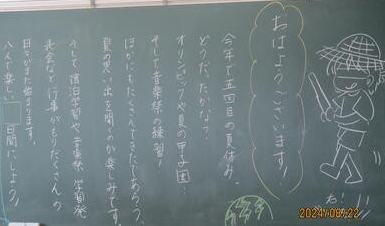 おはようございます!
今年で五回目の夏休み。
どうだったかな?
オリンピックや夏の甲子園…
そして音楽祭の練習!
ほかにもたくさんできたであろう、
夏の思い出を聞くのが楽しみです。
そして宿泊学習や音楽祭、学習発
表会など、行事がもりだくさんの
日々がまた始まります。
八人で楽しい 日間にしよう!
2024/08/22